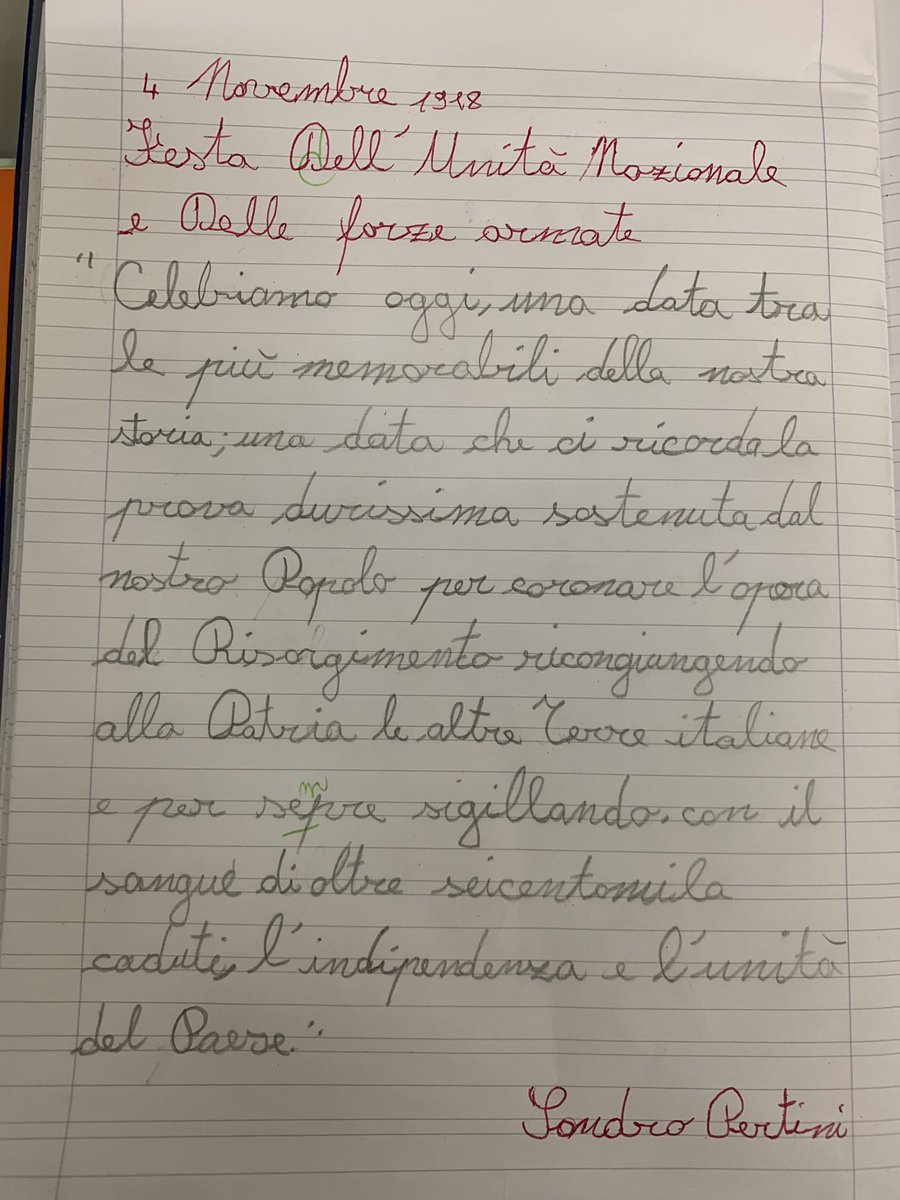 4 Novembre 1918
Festa Dell'Unità Nazionale
e Delle forze armate
"Celebriamo oggi, una data tra
le più memorabili della nostra
storia; una data che ci ricorda la
prova durissima sostenuta dal
nostro Popolo per coronare l'opera
del Risorgimento ricongiungendo
alla Patria le altre Terre italiane
e per sempre sigillando, con il
sangue di oltre seicentomila
caduti, l'indipendenza e l'unità
del Paese."
Sandro Pertini